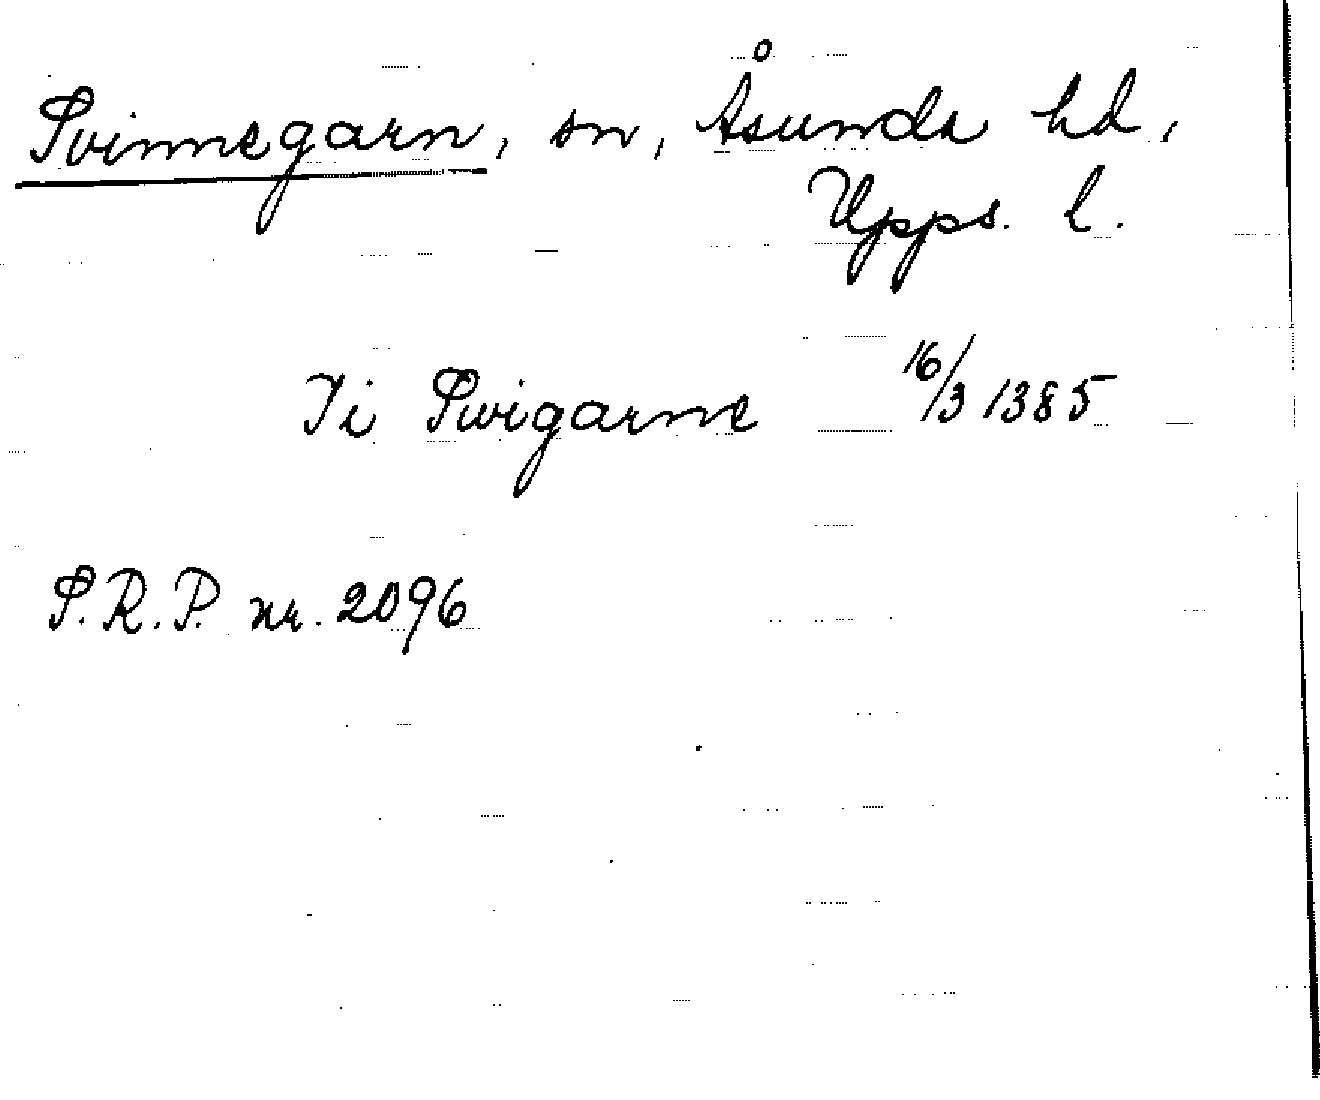 Svinnegarn, sn, Åsunda hd,
Upps. l.
Ji Swigarne 16/3 1385
S.R.P. nr. 2096